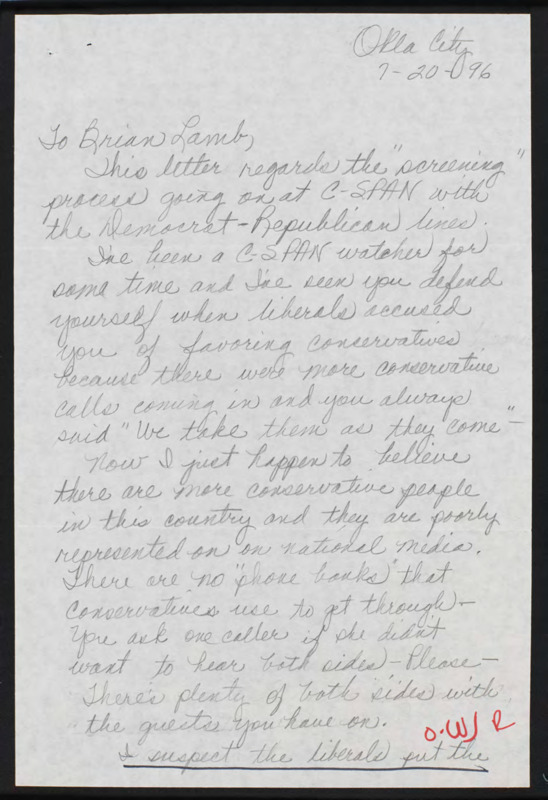 Okla City
7-20-96
To Brian Lamb,
This letter regards the "screening"
process going on at C-SPAN with
the Democrat-Republican lines.
I've been a C-SPAN watcher for
some time and I've seen you defend
yourself when liberals accused
you of favoring conservatives
because there were more conservative
calls coming in and you always
said "We take them as they come"-
Now I just happen to believe
there are more conservative people
in this country and they are poorly
represented on on national media.
There are no "phone banks" that
conservatives use to get through-
You ask one caller if she didn't
want to hear both sides-Please-
There's plenty of both sides with
the guests you have on.
I suspect the liberals put the